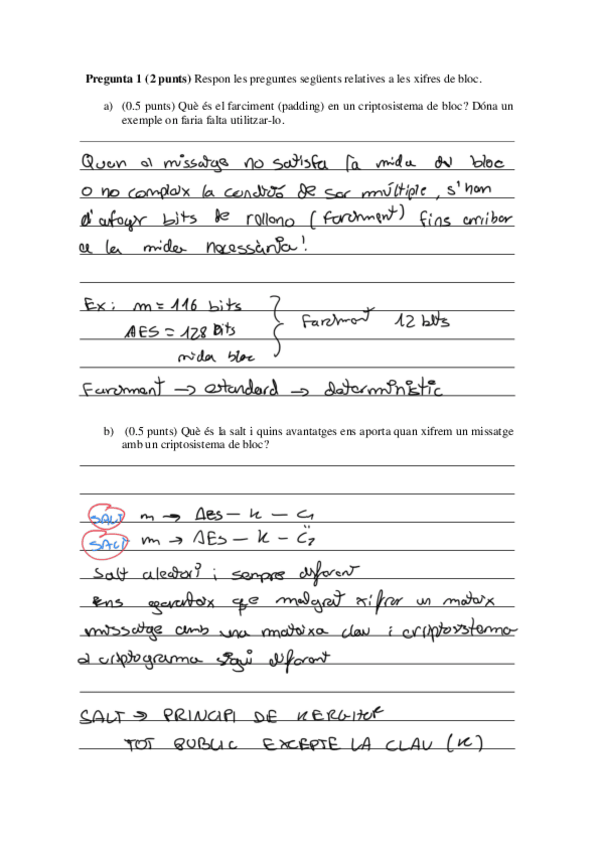 Pregunta 1 (2 punts) Respon les preguntes següents relatives a les xifres de bloc.
a) (0.5 punts) Què és el farciment (padding) en un criptosistema de bloc? Dóna un
exemple on faria falta utilitzar-lo.
Quan el missatge no satisfa la mida del bloc
o no compleix la condició de ser múltiple, s'han
d'afegir bits de relleno (farciment) fins arribar
a la mida necessària!
Ex: m = 116 bits
AES = 128 bits
mida bloc
Farciment 12 bits
Farciment → estandard → determinístic
b) (0.5 punts) Què és la salt i quins avantatges ens aporta quan xifrem un missatge
amb un criptosistema de bloc?
SALT m → AES — K — C1
SALT m → AES — K — C2
Salt aleatori i sempre diferent
Ens garanteix que malgrat xifrar un mateix
missatge amb una mateixa clau i criptosistema
el criptograma sigui diferent
SALT → PRINCIPI DE
TOT PUBLIC EXCEPTE LA CLAU (K)